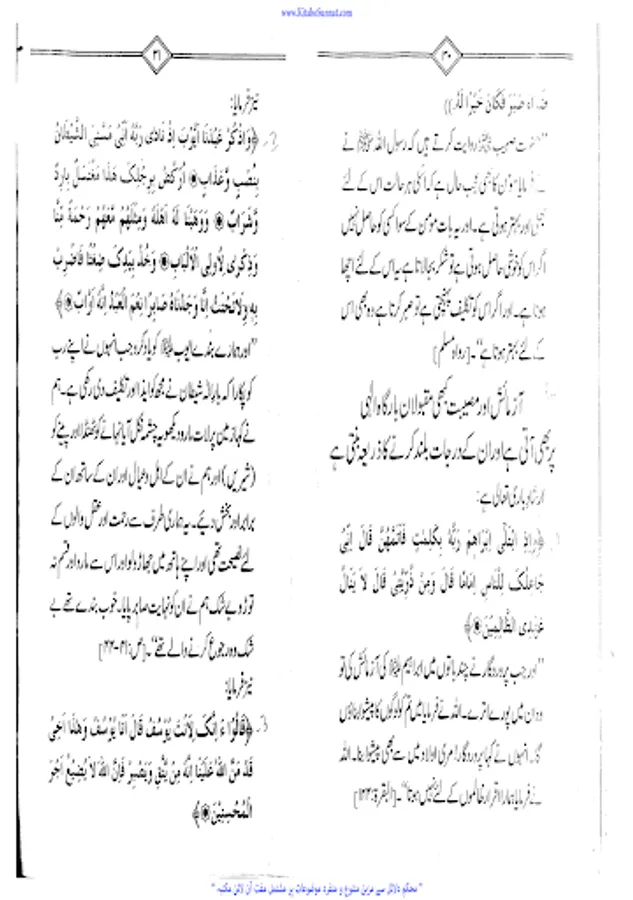 www.KitaboSunnat.com
۲۰
ضراء صبر فكان خيرا له))
"حضرت صہیب ﷺ روایت کرتے ہیں کہ رسول اللہ ﷺ نے
فرمایا مؤمن کا بھی عجب حال ہے کہ اسکی ہر حالت اس کے لئے
بھلی اور بہتر ہوتی ہے۔ اور یہ بات مؤمن کے سوا کسی کو حاصل نہیں
اگر اس کو خوشی حاصل ہوتی ہے تو شکر بجا لاتا ہے یہ اس کے لئے اچھا
ہوتا ہے۔ اور اگر اس کو تکلیف پہنچتی ہے تو صبر کرتا ہے وہ بھی اس
کے لئے بہتر ہوتا ہے"۔ [رواہ مسلم]
آزمائش اور مصیبت کبھی مقبولان بارگاہ الٰہی
پر بھی آتی ہے اور ان کے درجات بلند کرنے کا ذریعہ بنتی ہے
ارشاد باری تعالیٰ ہے:
﴿وَاِذِ ابْتَلٰى اِبْرَاهِمَ رَبُّهٗ بِكَلِمٰتٍ فَاَتَمَّهُنَّ قَالَ اِنِّىْ
جَاعِلُكَ لِلنَّاسِ اِمَامًا قَالَ وَمِنْ ذُرِّيَّتِىْ قَالَ لَا يَنَالُ
عَهْدِى الظّٰلِمِيْنَ﴾
"اور جب پروردگار نے چند باتوں میں ابراہیم ﷺ کی آزمائش کی تو
وہ ان میں پورے اترے۔ اللہ نے فرمایا میں تم کو لوگوں کا پیشوا بناؤں
گا۔ انہوں نے کہا پروردگار! میری اولاد میں سے بھی پیشوا بنا۔ اللہ
نے فرمایا ہمارا اقرار ظالموں کے لئے نہیں ہوتا"۔ [البقرۃ:۱۲۴]
۲۱
نیز فرمایا:
2. ﴿وَاذْكُرْ عَبْدَنَا اَيُّوْبَ اِذْ نَادٰى رَبَّهٗ اَنِّىْ مَسَّنِىَ الشَّيْطَانُ
بِنُصْبٍ وَّعَذَابٍ۞ اُرْكُضْ بِرِجْلِكَ هٰذَا مُغْتَسَلٌ بَارِدٌ
وَّشَرَابٌ۞ وَوَهَبْنَا لَهٗ اَهْلَهٗ وَمِثْلَهُمْ مَّعَهُمْ رَحْمَةً مِّنَّا
وَذِكْرٰى لِاُولِى الْاَلْبَابِ۞ وَخُذْ بِيَدِكَ ضِغْثًا فَاضْرِبْ
بِّهٖ وَلَا تَحْنَثْ اِنَّا وَجَدْنَاهُ صَابِرًا نِعْمَ الْعَبْدُ اِنَّهٗ اَوَّابٌ۞﴾
"اور ہمارے بندے ایوب ﷺ کو یاد کرو جب انہوں نے اپنے رب
کو پکارا کہ بارالہ شیطان نے مجھ کو ایذا اور تکلیف دی رکھی ہے۔ ہم
نے کہا زمین پر لات مارو دیکھو یہ چشمہ نکل آیا نہانے کو ٹھنڈا اور پینے کو
(شیریں) اور ہم نے ان کے اہل و عیال اور ان کے ساتھ ان کے
برابر اور بخش دیئے۔ یہ ہماری طرف سے رحمت اور عقل والوں کے
لئے نصیحت تھی اور اپنے ہاتھ میں جھاڑو لو اور اس سے مارو اور قسم نہ
توڑو بے شک ہم نے ان کو نہایت صابر پایا۔ خوب بندے تھے بے
شک وہ رجوع کرنے والے تھے"۔ [ص:۴۱-۴۴]
نیز فرمایا:
3. ﴿قَالُوْٓا ءَاِنَّكَ لَاَنْتَ يُوْسُفُ قَالَ اَنَا يُوْسُفُ وَهٰذَا اَخِىْ
قَدْ مَنَّ اللّٰهُ عَلَيْنَا اِنَّهٗ مَنْ يَّتَّقِ وَيَصْبِرْ فَاِنَّ اللّٰهَ لَا يُضِيْعُ اَجْرَ
الْمُحْسِنِيْنَ۞﴾
"محکم دلائل سے مزین متنوع و منفرد موضوعات پر مشتمل مفت آن لائن مکتبہ"